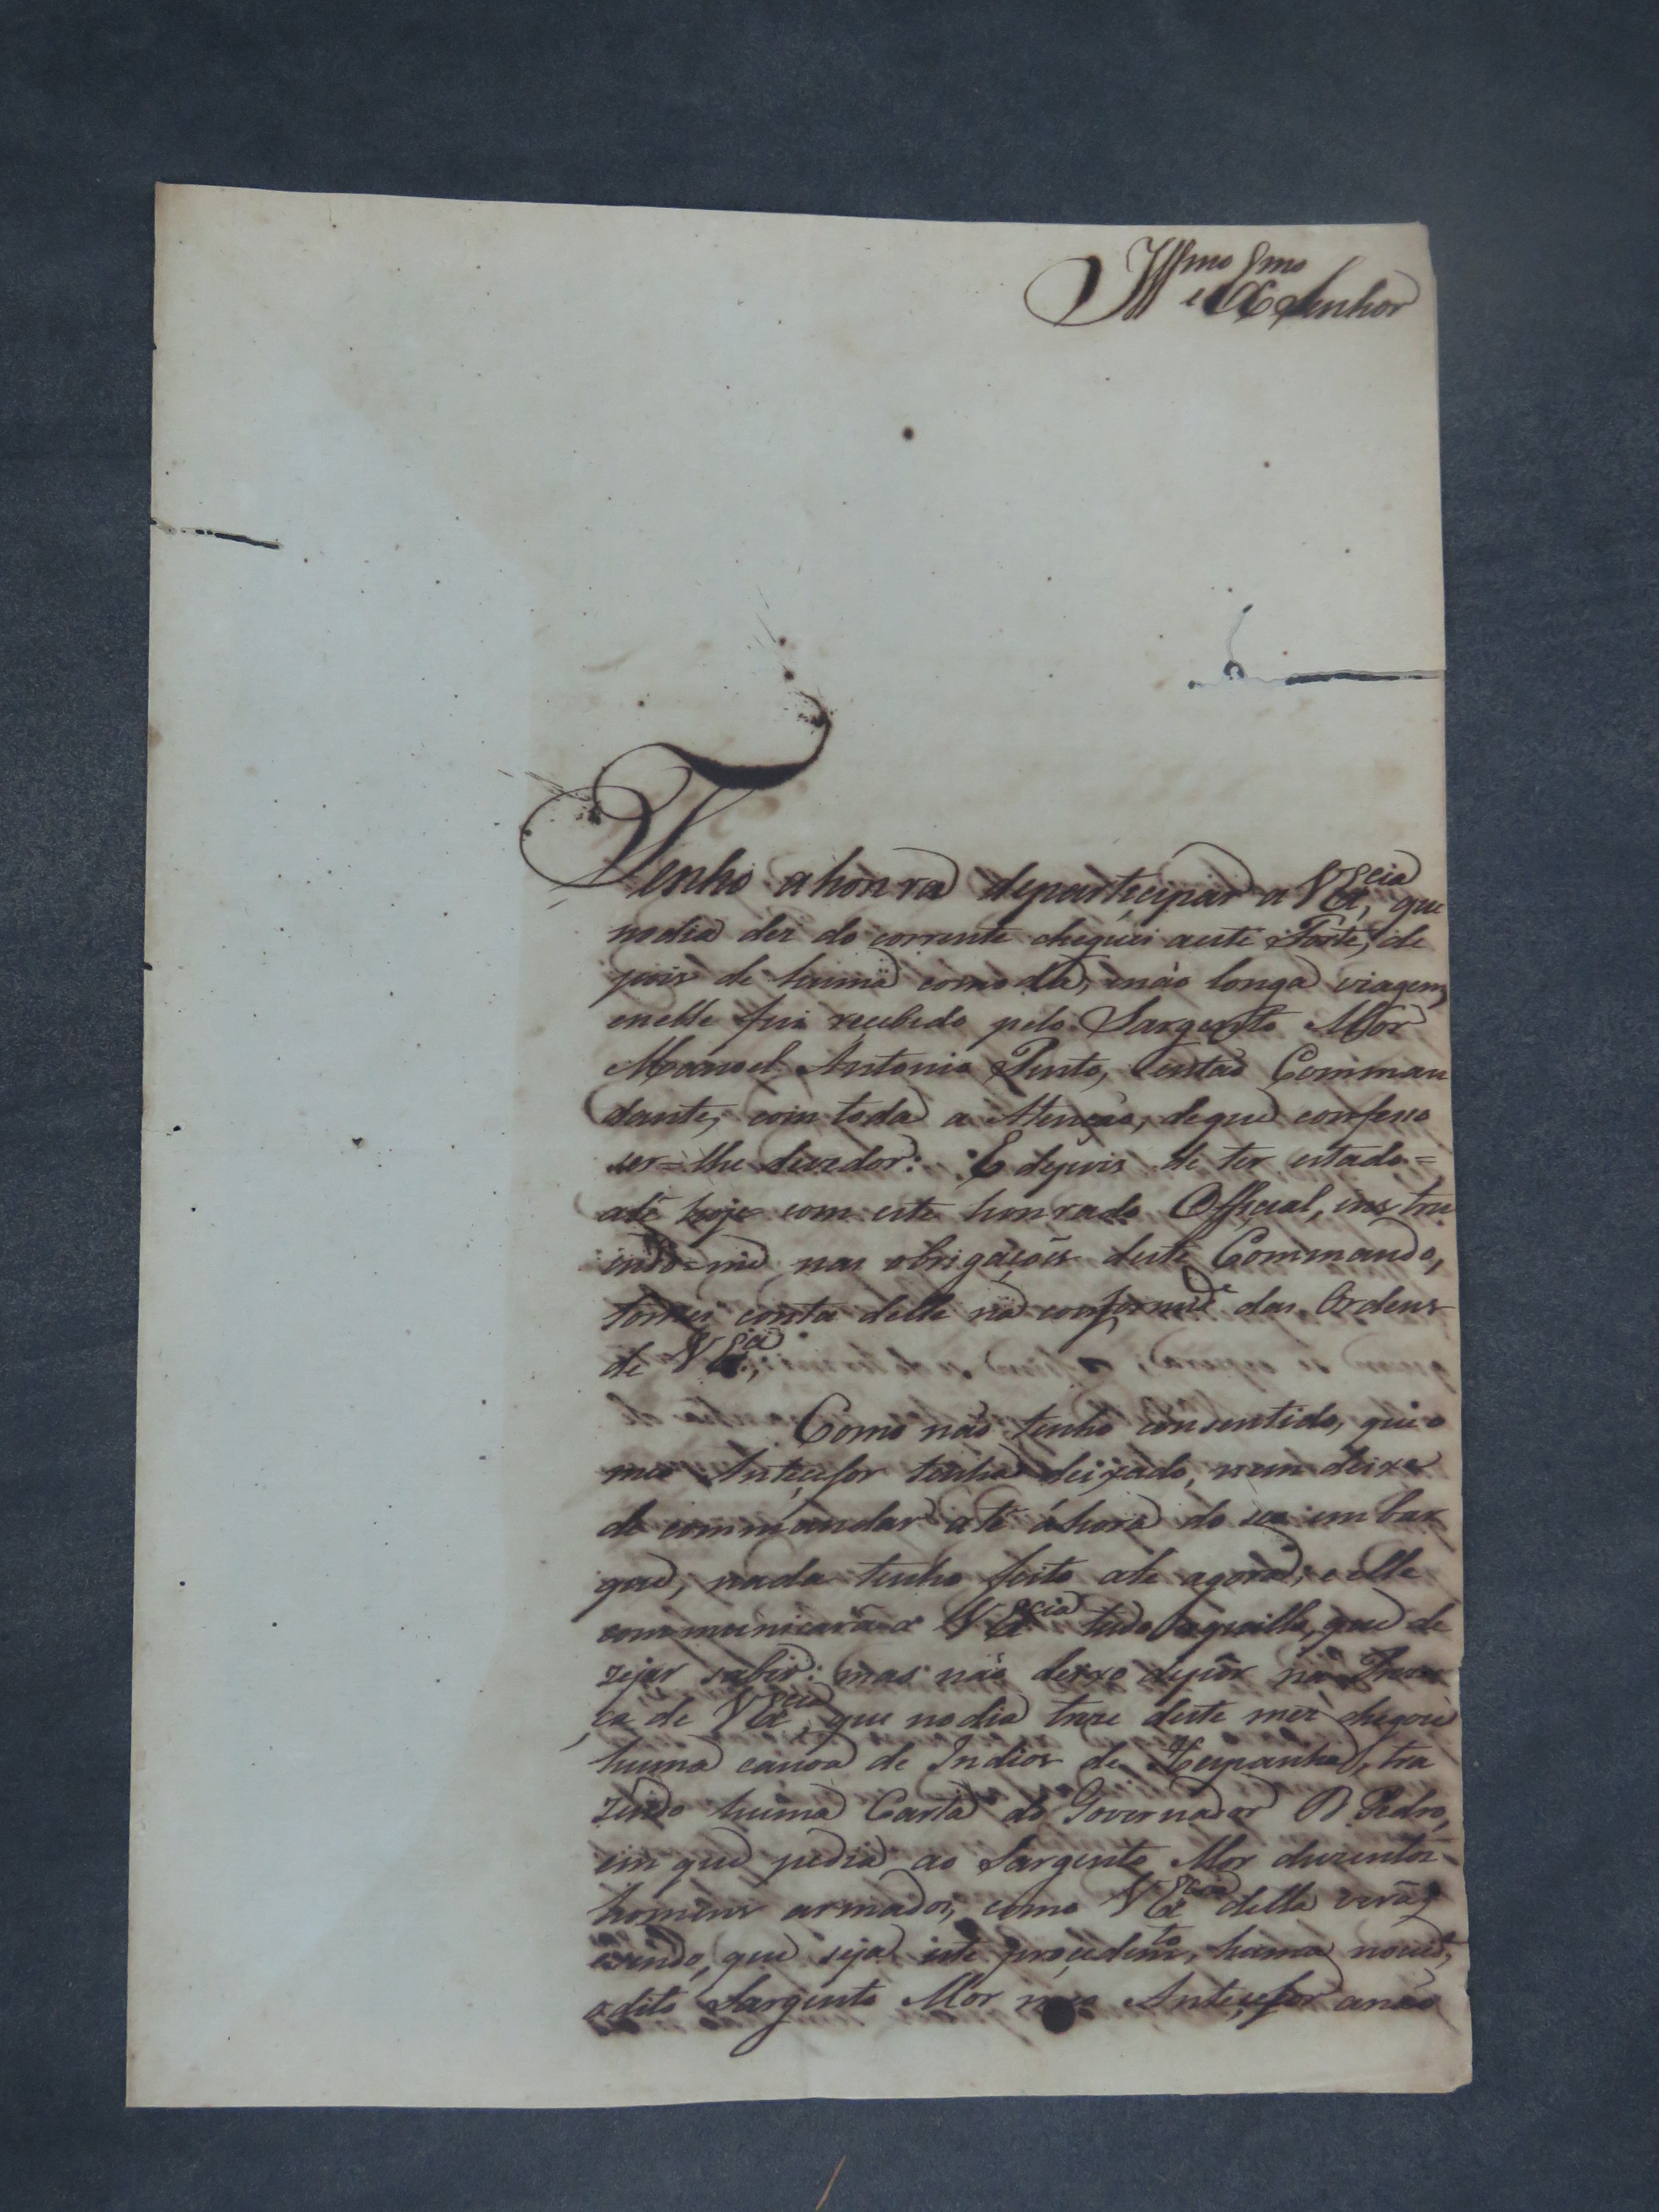 Illmo e Exmo Senhor
Tenho a honra departicipar a VExcia, que
nodia dez do corrente cheguei aeste Forte, de
pois de huma comoda, enão longa viagem,
enelle fui recebido pelo Sargento Mor
Manoel Antonio Pinto, então Comman
dante, com toda a Atenção, deque confesso
ser=lhe devedor: E depois de ter estado=
até hoje com este honrado Official, instru
indo=me nas obrigações deste Commando,
tomei conta delle na conformide das Ordens
de VExa,
Como não tenho consentido, que o
meu Antecessor tenha deixado, nem deixe
de commandar até áhora do seu embar
que, nada tenho feito até agora; e elle
communicará a VExcia tudo aquillo, que de
zejar saber: mas não deixo depôr na Prezen
ça de VExcia, que nodia treze deste mez chegou
huma canoa de Indios de Hespanha, tra
zendo huma Carta do Governador D. Pedro,
em que pedia ao Sargento Mor duzentos
homens armados, como VExcia della verá;
e sendo, que seja este procedimto, huma novide,
o dito Sargento Mor meu Antecessor anão